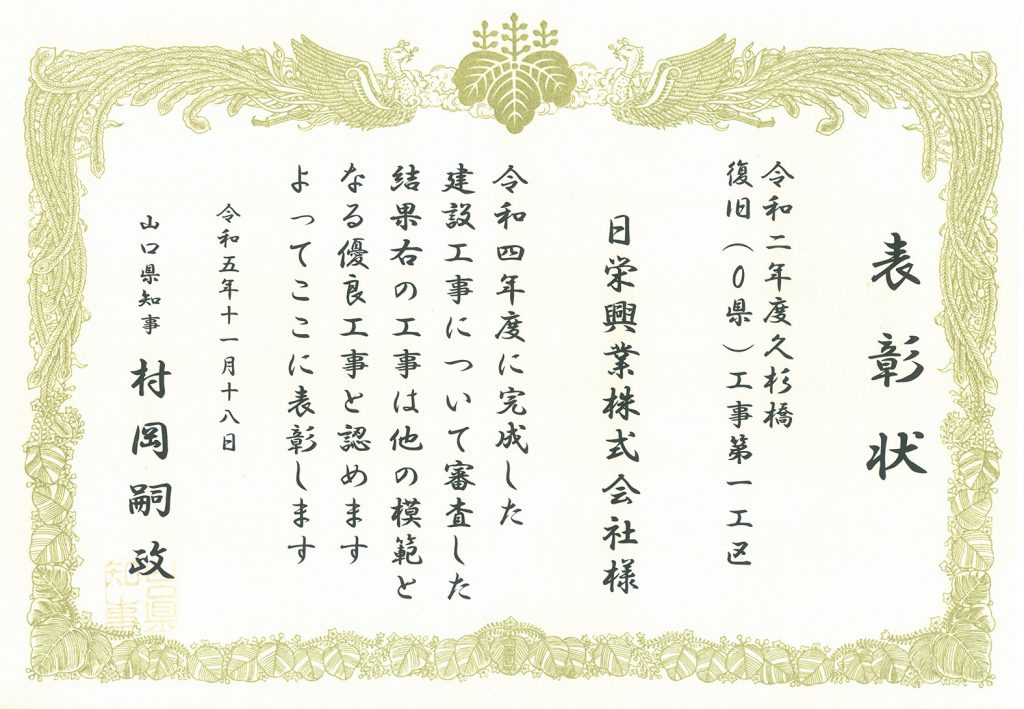 表彰状
令和二年度久杉橋
復旧（０県）工事第一工区
日栄興業株式会社様
令和四年度に完成した
建設工事について審査した
結果右の工事は他の模範と
なる優良工事と認めます
よってここに表彰します
令和五年十一月十八日
山口県知事 村岡嗣政